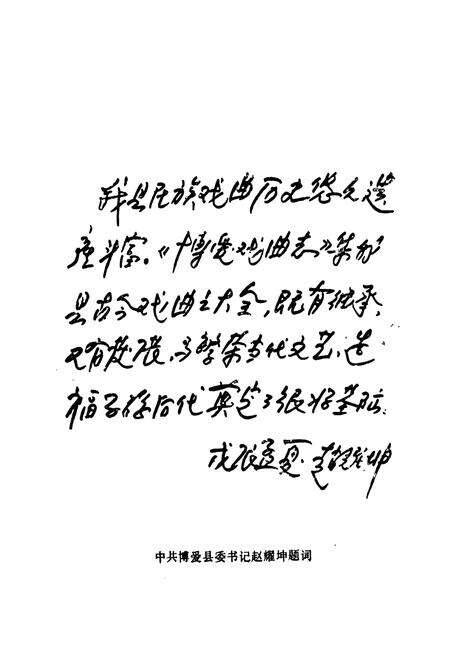 我县民族戏曲历史悠久遗
产丰富。《博爱戏曲志》集我
县古今戏曲之大全，既有继承，
又有发展，为繁荣当代文艺，造
福子孙后代奠定了很好基础。
戊辰孟夏·赵耀坤
中共博爱县委书记赵耀坤题词